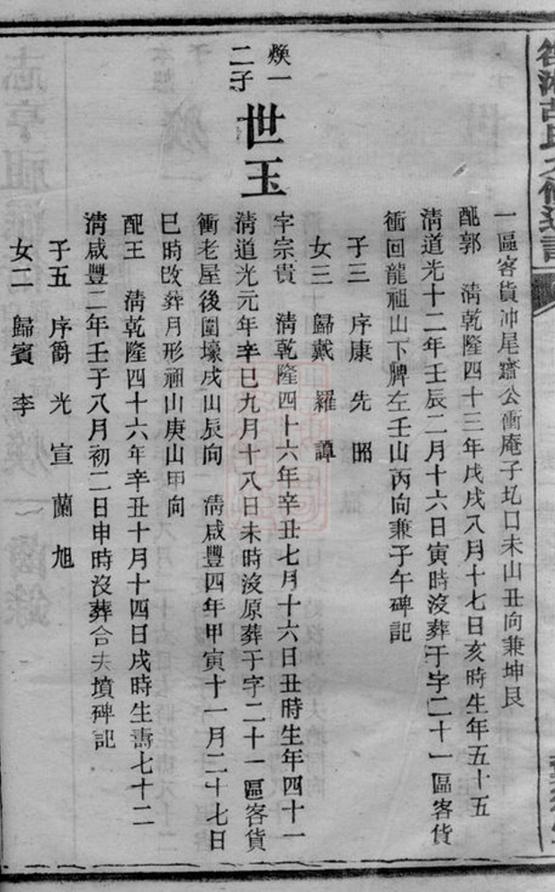 一區客貨冲尾齋公衝庵子圠口未山丑向兼坤艮
配郭　清乾隆四十三年戊戌八月十七日亥時生年五十五
清道光十二年壬辰二月十六日寅時沒葬于字二十一區客貨
衝回龍祖山下脾左壬山丙向兼子午碑記
子三　序康　先　昭
女三　歸戴　羅　譚
煥一
二子
世玉
字宗貴　清乾隆四十六年辛丑七月十六日丑時生年四十一
清道光元年辛巳九月十八日未時沒原葬于字二十一區客貨
衝老屋後圍壕戌山辰向　清咸豐四年甲寅十一月二十七日
巳時改葬月形祖山庚山甲向
配王　清乾隆四十六年辛丑十月十四日戌時生壽七十二
清咸豐二年壬子八月初二日申時沒葬合夫墳碑記
子五　序爵　光　宣　蘭　旭
女二　歸賓　李